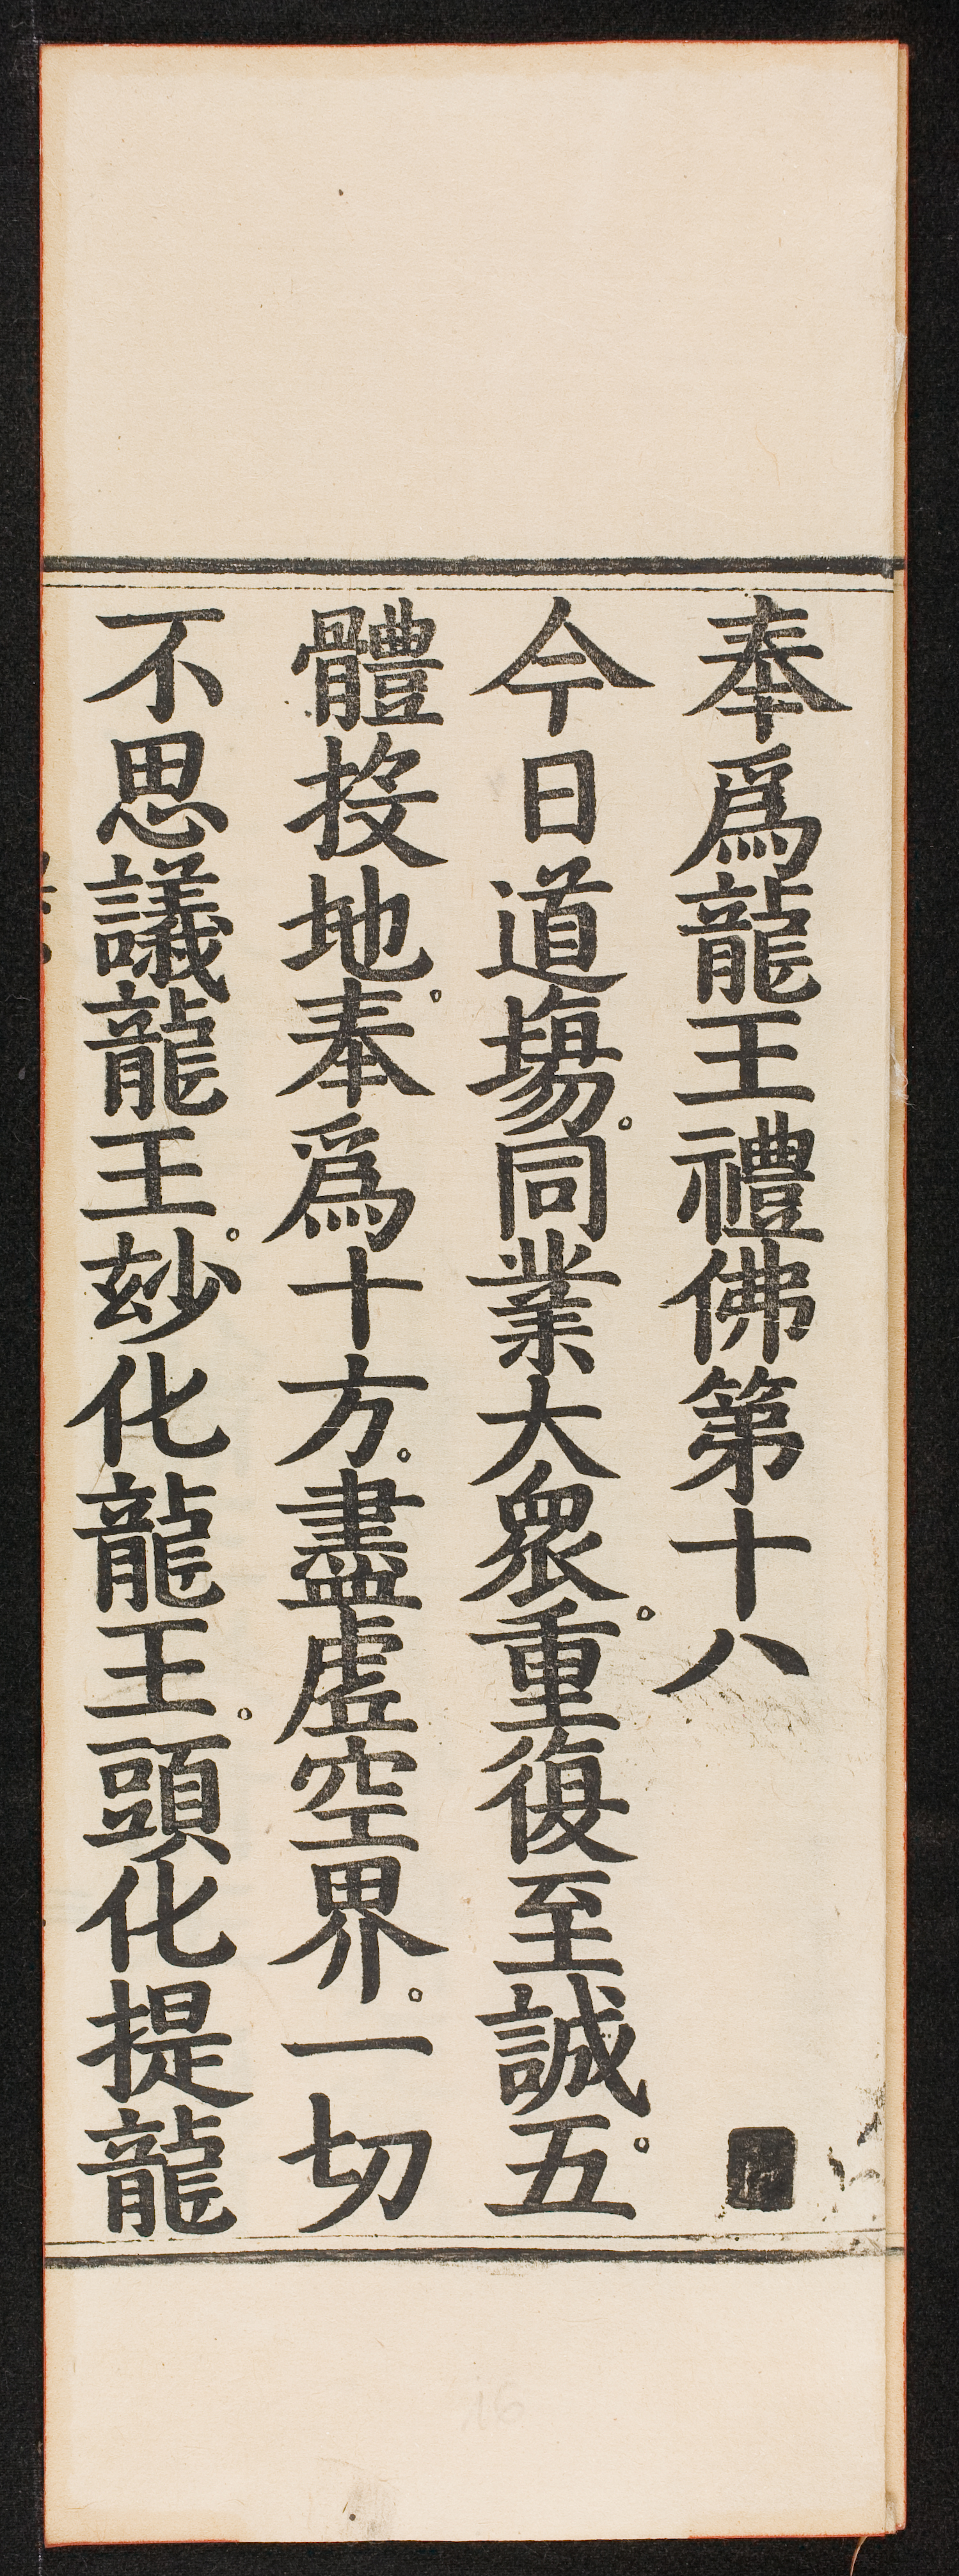 奉爲龍王禮佛第十八
今日道塲。同業大衆。重復至誠。五
體投地。奉爲十方。盡虛空界。一切
不思議龍王。玅化龍王。頭化提龍